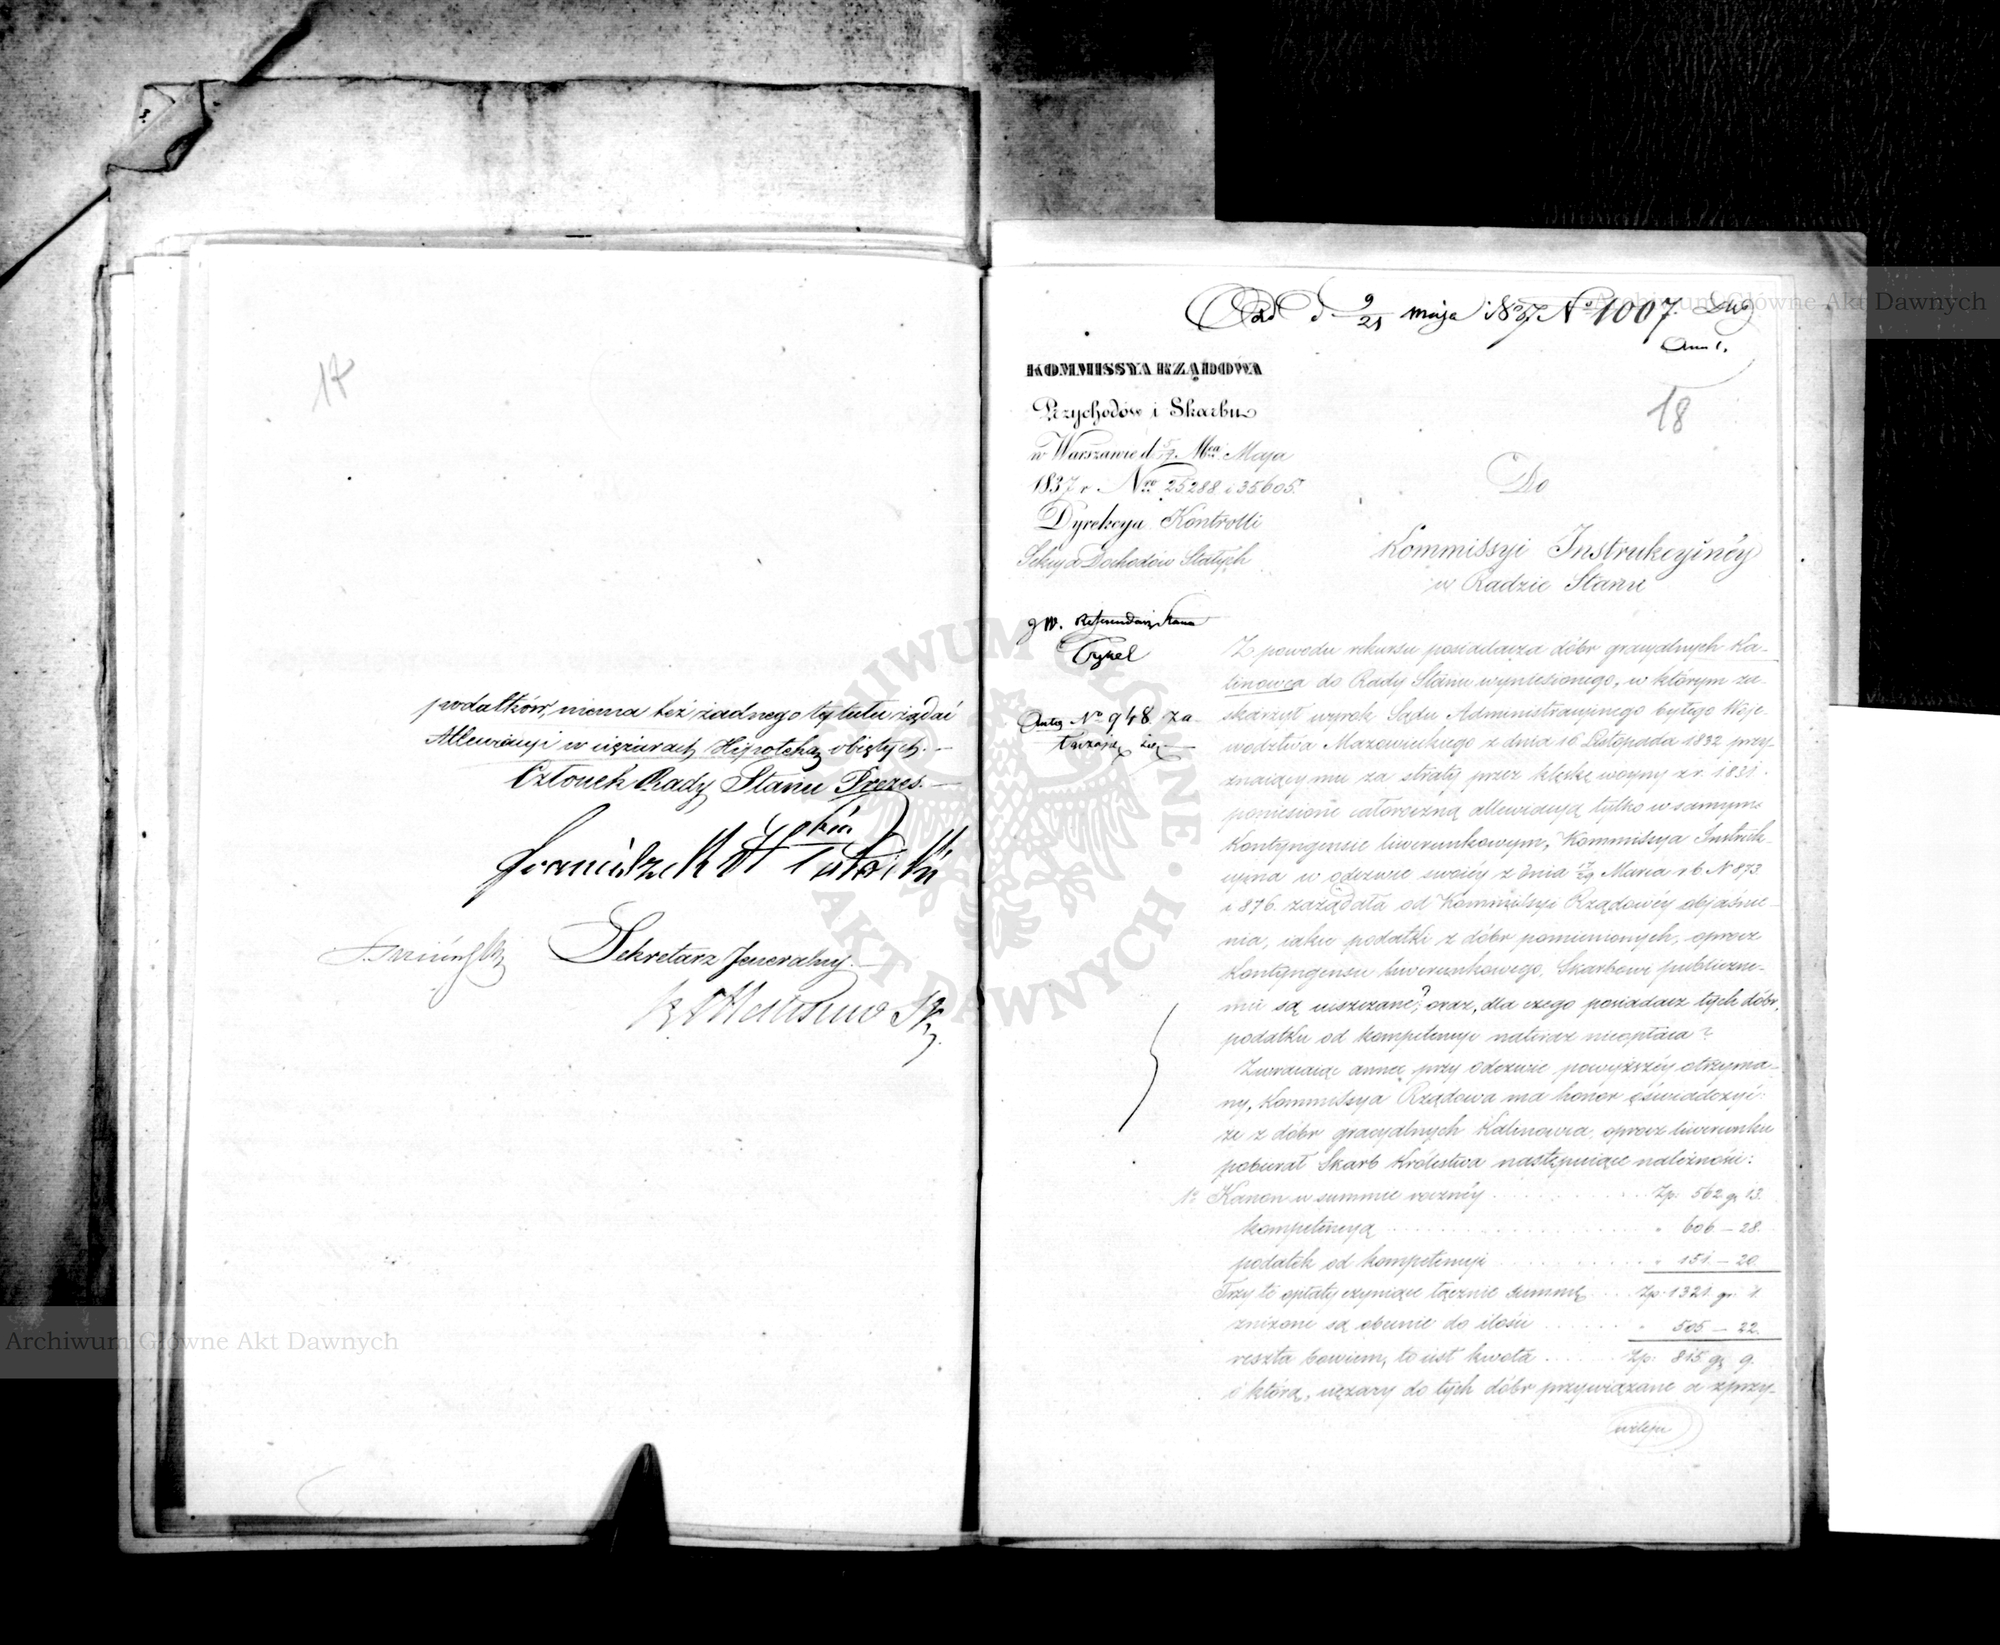 17
podatków, niema też żadnego tytułu żądać
Allewiacyi w ciężarach Hipoteką objętych.
Członek Rady Stanu Prezes.
Franciszek
Sekretarz Jeneralny.
d. 9/21 maja 1837 No 1007.
Ann 1.
18
KOMMISSYA RZĄDOWA
Przychodów i Skarbu
w Warszawie d. Mca Maja
1837 r. Nro 25288 i 35605.
Dyrekcya Kontrolli
Sekcya Dochodów Stałych
JW. Referendarz Stanu
No 948. za-
łączają się
Do
Kommissyi Instrukcyinéy
w Radzie Stanu
Z powodu rekursu posiadacza dóbr gracyalnych Ka-
linowca do Rady Stanu wyniesionego, w którym za-
skarżył wyrok Sądu Administracyinego byłego Woje-
wodztwa Mazowieckiego z dnia 16 Listopada 1832 przy-
znaiący mu za straty przez klęskę woyny z r. 1831.
poniesione całoroczną allewiacyą tylko w samym
Kontyngensie liwerunkowym, Kommissya Instruk-
cyina w odezwie swoiéy z dnia 17/29 Marca r b. N 873.
i 876. zażądała od Kommissyi Rządowéy objaśnie-
nia, iakie podatki z dóbr pomienionych, oprócz
Kontyngensu liwerunkowego, Skarbowi publiczne-
mu są uiszczane? oraz, dla czego posiadacz tych dóbr,
podatku od kompetencyi nateraz nieopłaca?
Zwracaiąc annex przy odezwie powyższéy otrzyma-
ny, Kommissya Rządowa ma honor oświadczyć:
że z dóbr gracyalnych Kalinowca, oprócz liwerunku
pobierał Skarb Królestwa następuiące należności:
1o Kanon w summie rocznéy . . . Zp. 562 gr 13.
kompetencyą . . . " 606 — 28.
podatek od kompetencyi . . . " 151 — 20.
Trzy te opłaty czyniące łącznie summę . . . Zp. 1321. gr. 1.
zniżone są obecnie do ilości . . . " 505 — 22.
reszta bowiem, to iest kwota . . . Zp: 815 gr 9.
o którą, ciężary do tych dóbr przywiązane a z przy-
wileju
Archiwum Główne Akt Dawnych
Archiwum Główne Akt Dawnych
ARCHIWUM GŁÓWNE AKT DAWNYCH